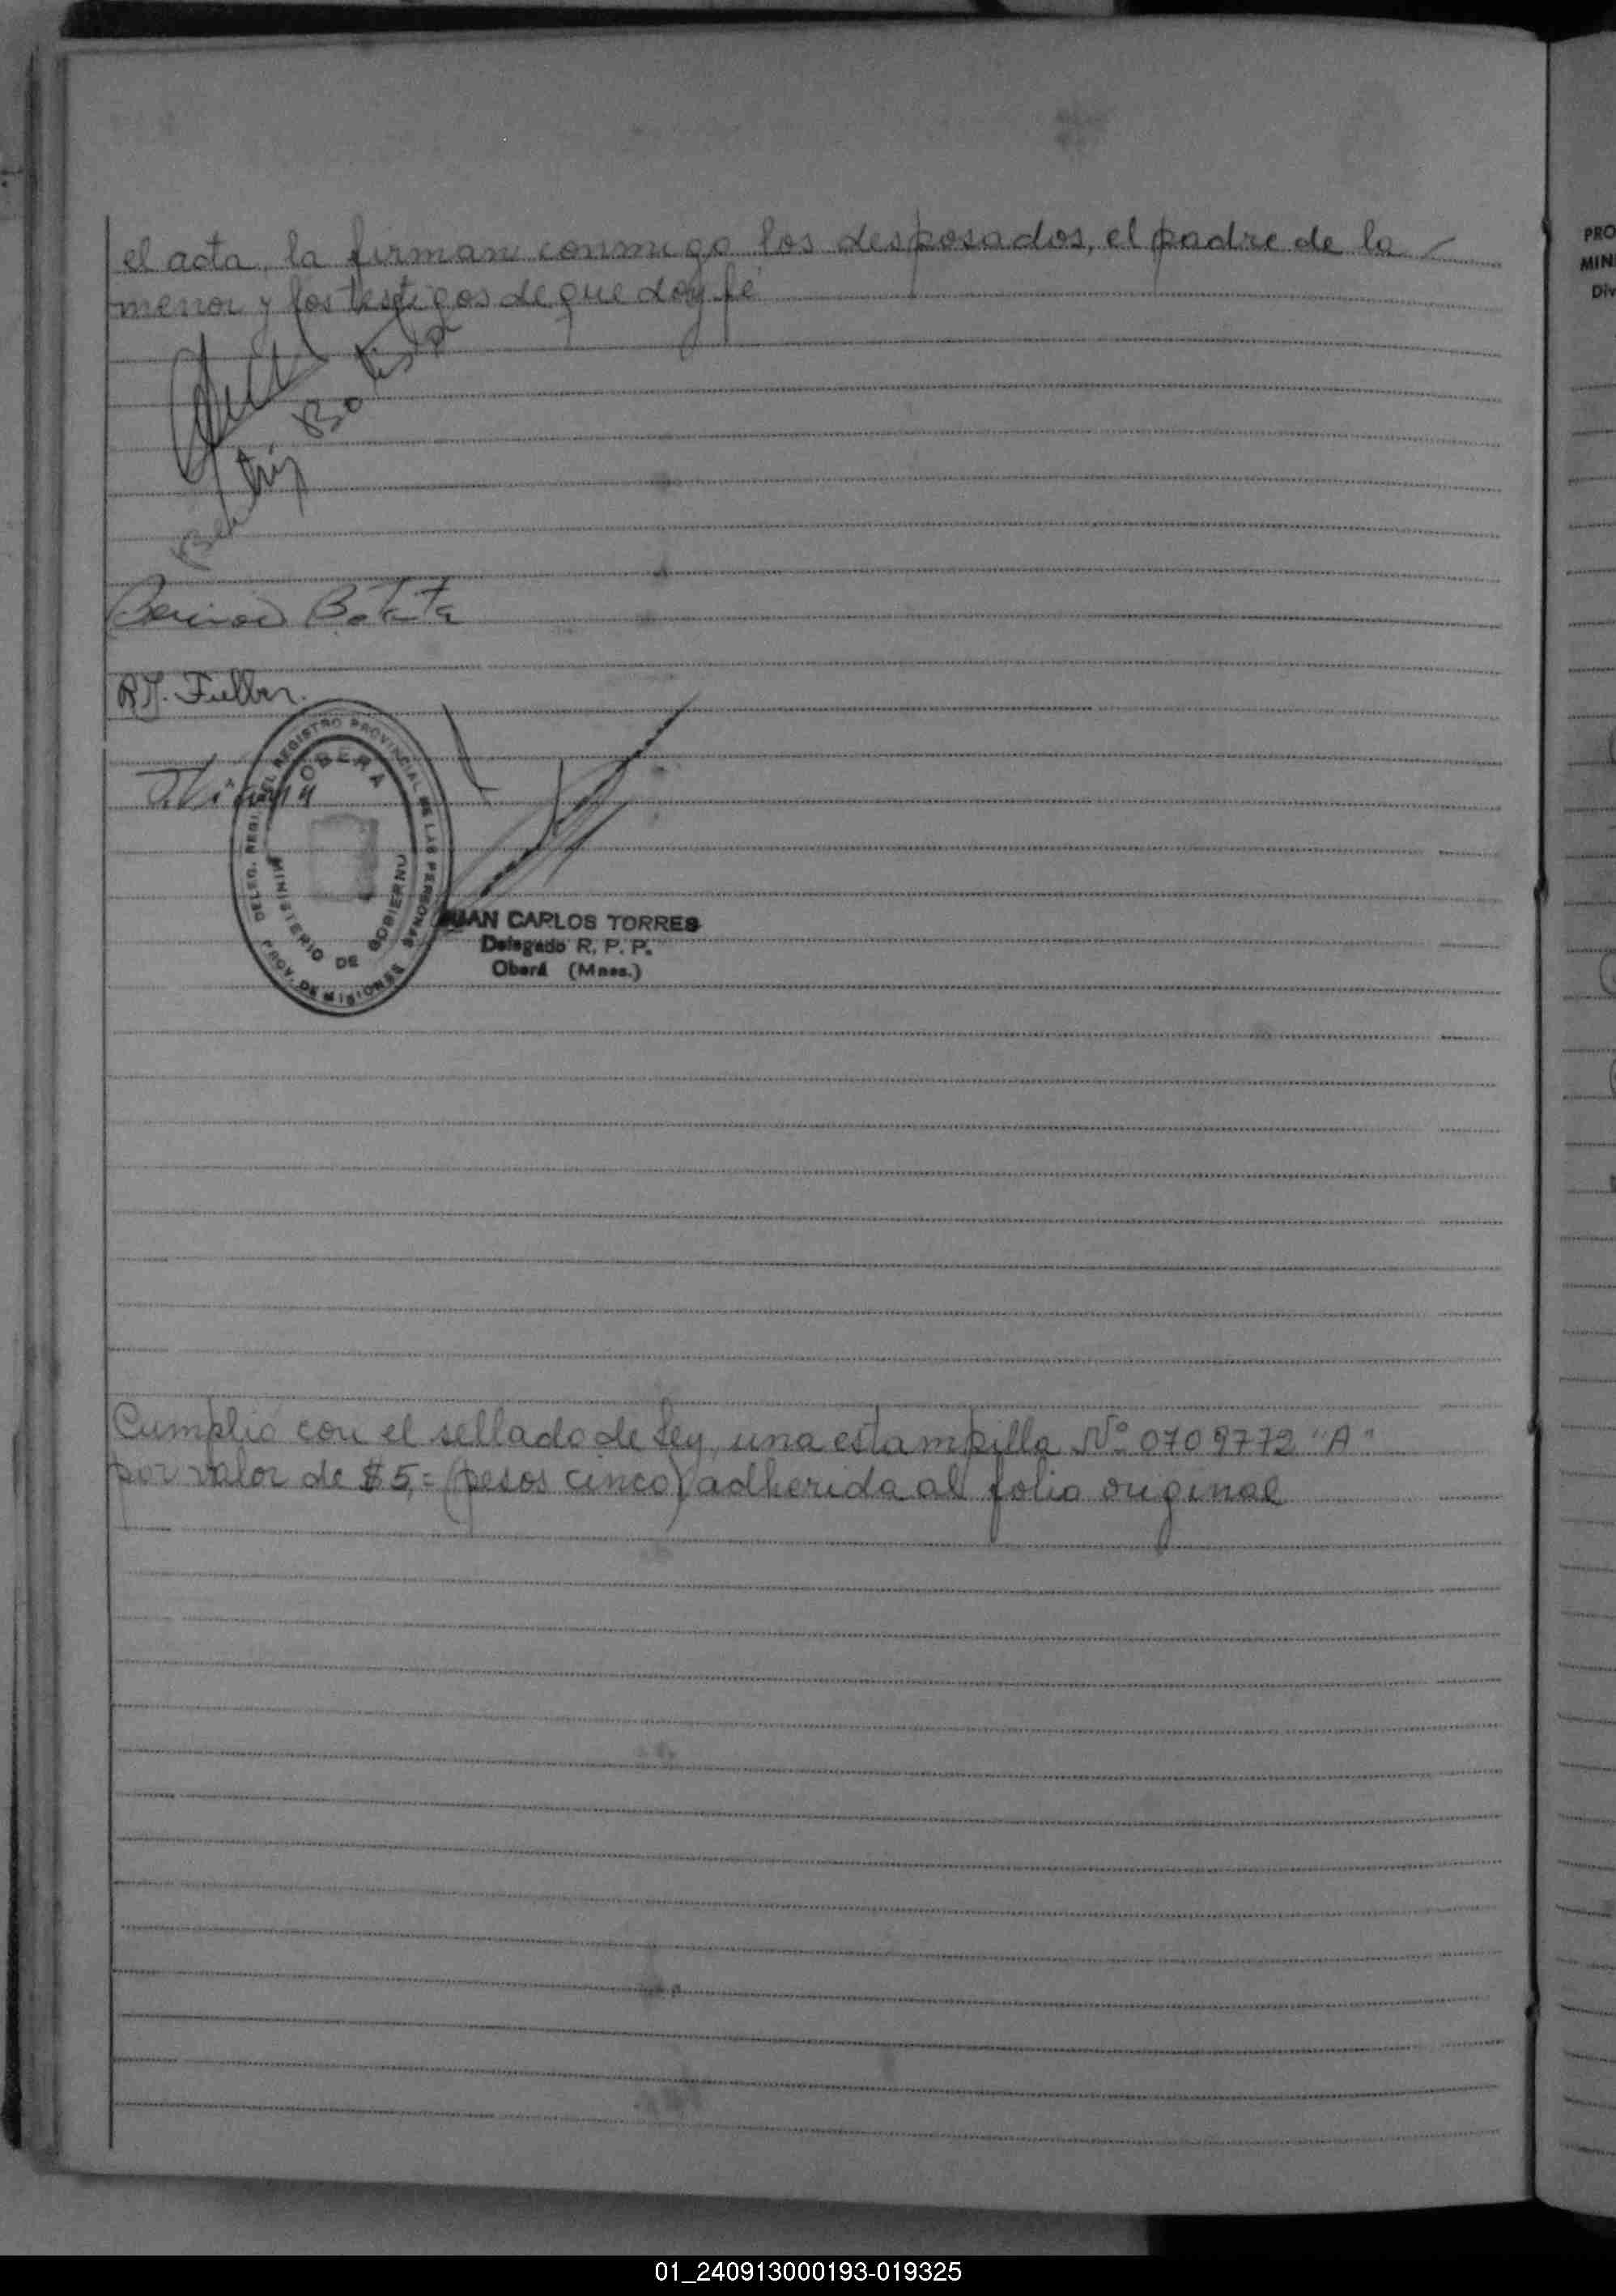 el acta, la firman conmigo los desposados, el padre de la
menor y los testigos de que doy fé
Batista
Beatriz
Batista
R.J. Fulber.
DELEG. REGI. DEL REGISTRO PROVINCIAL DE LAS PERSONAS
OBERA
MINISTERIO DE GOBIERNO
PROV. DE MISIONES
JUAN CARLOS TORRES
Delegado R. P. P.
Oberá (Mnes.)
Cumplió con el sellado de Ley, una estampilla Nº 0709772 "A"
por valor de $5,= (pesos cinco) adherida al folio original
PRO
MIN
Div
01_240913000193-019325